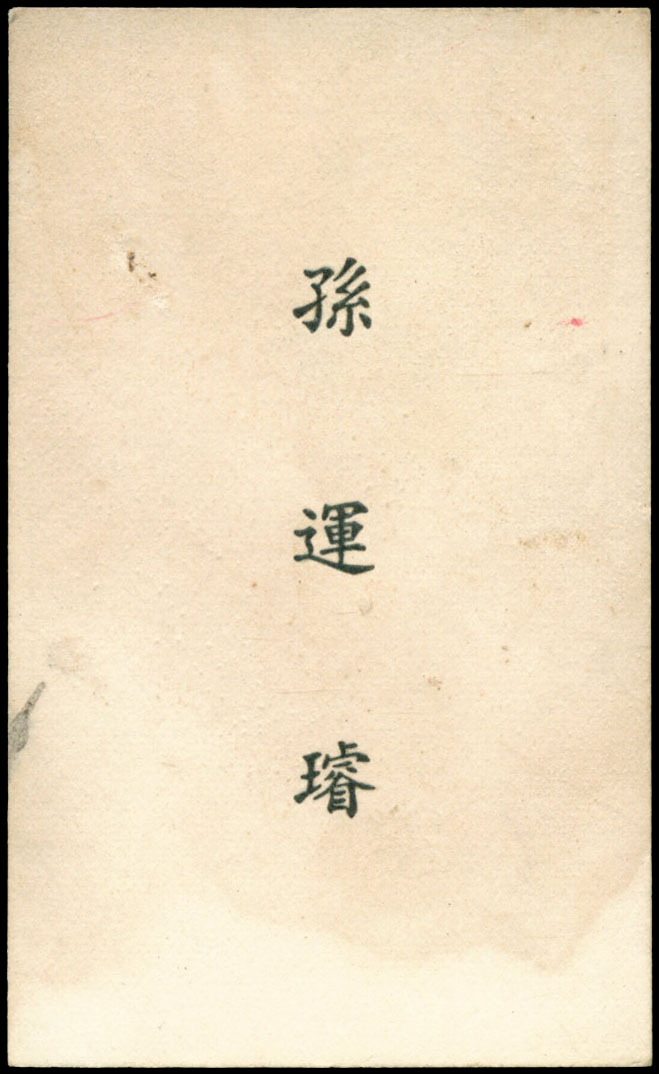 孫運璿